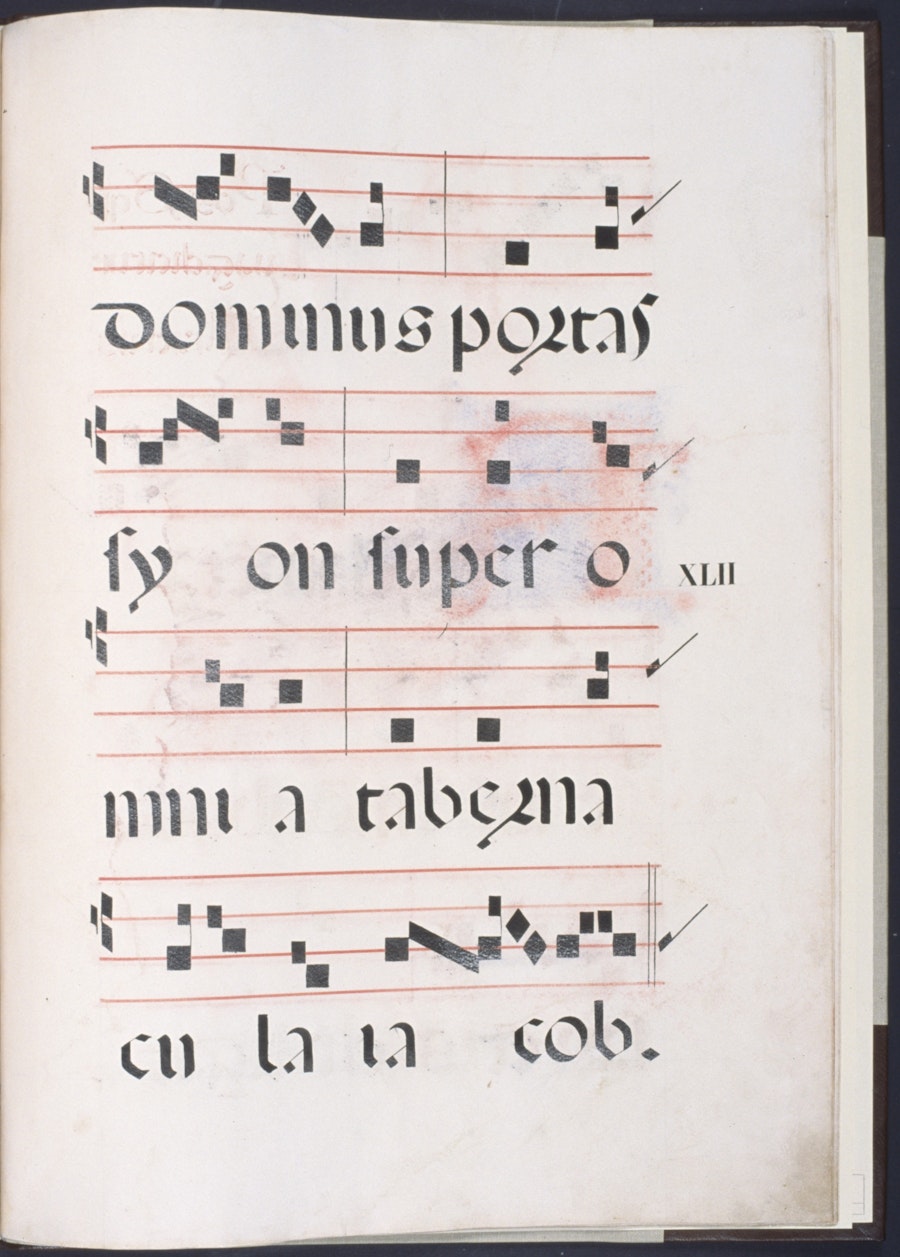 dominus portas
sy on super o
XLII
mni a taberna
cu la ia cob.